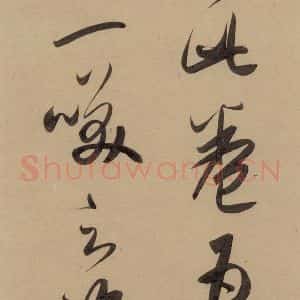 此卷
一咲云
Shufawang.CN